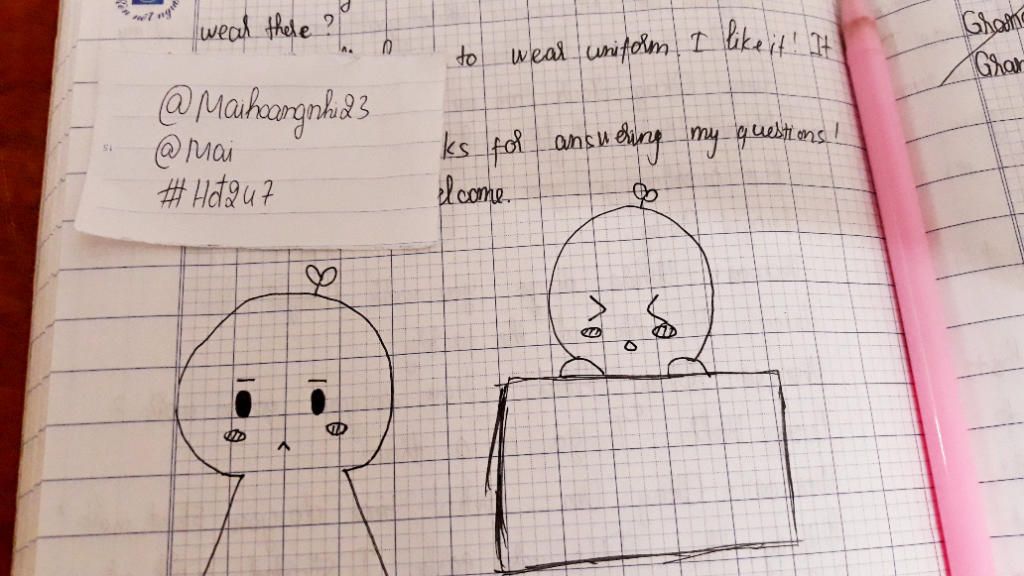 wear there ?
to wear uniform. I like it! It
@Maihoangnhi23
@Mai
#Hđ247
ks for answering my questions!
elcome.
Gram
Gram